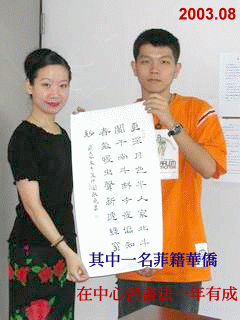 2003.08
更深月色半人家北斗
闌干南斗斜今夜偏知
春氣暖虫聲新透綠窗
紗
其中一名菲籍華僑
在中心習書法一年有成